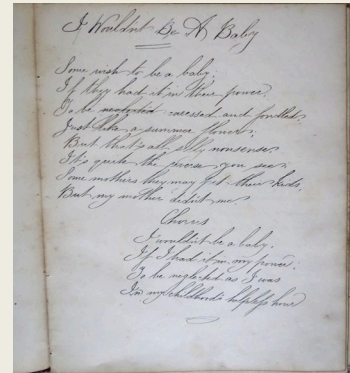 I Wouldn't Be A Baby
Some wish to be a baby,
If they had it in their power
To be neglected caressed and fondled,
Just like a summer flower;
But that's all silly nonsense
It's quite the you see,
Some mothers they may pet their kids,
But my mother didn't me
Chorus
I wouldn't be a baby,
If I had it in my power;
To be neglected as I was
In my childhood's helpless hour